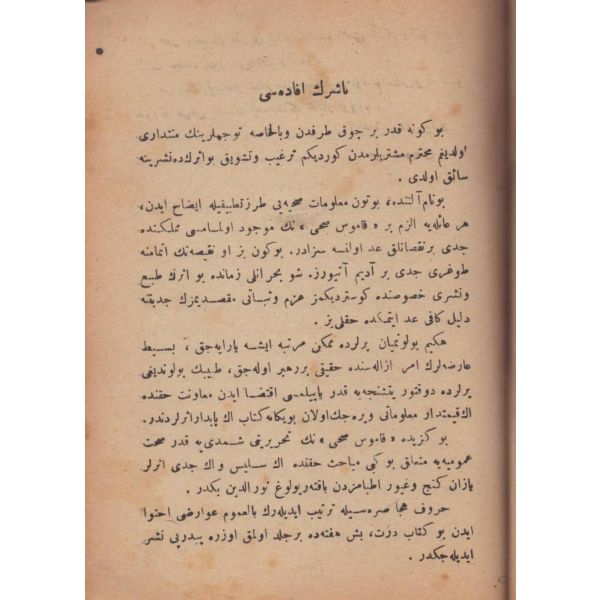 ناشرك افاده‌سی
بو كونه قدر بر چوق طرفدن وبالخاصه توجهلرینك منتداری
اولدیغم محترم مشتریلرمدن كوردیكم ترغیب وتشویق بواثرك ده نشرینه
سائق اولدی .
بونام آلتنده، بوتون معلومات صحیه‌یی طرز تطبیقیله ایضاح ایدن،
هر عائله‌یه الزم بر « قاموس صحی » نك موجود اولمامسی مملكتده
جدی بر نقصانلق عد اولنسه سزادر. بوكون بز او نقیصه‌نك اتمامنه
طوغری جدی بر آدیم آتیورز. شو بحرانلی زمانده بو اثرك طبع
ونشری خصوصنده كوستردیكمز عزم وثباتی مقصدیمزك جدیتنه
دلیل كافی عد ایتمكده حقلی‌یز .
حكیم بولونمیان یرلرده ممكن مرتبه ایشه یارایه‌جق ، بسیط
عارضه‌لرك امر ازاله‌سنده حقیقی بررهبر اوله‌جق، طبیبك بولوندیغی
یرلرده دوقتور یتشنجه‌یه قدر یاپیلمسی اقتضا ایدن معاونت حقنده
اك قیمتدار معلوماتی ویره‌جك اولان یویكانه كتاب اك پایدار اثرلردندر.
بو كزیده « قاموس صحی » نك تحریرینی شمدی‌یه قدر صحت
عمومیه‌یه متعلق بو كبی مباحث حقنده اك سلیس واك جدی اثرلر
یازان كنج وغیور اطبامزدن باقته‌ریولوغ نورالدین بكدر .
حروف هجا صره‌سیله ترتیب ایدیله‌رك بالعموم عوارضی احتوا
ایدن بو كتاب درت، بش هفته‌ده بر جلد اولمق اوزره پیدرپی نشر
ایدیله‌جكدر .